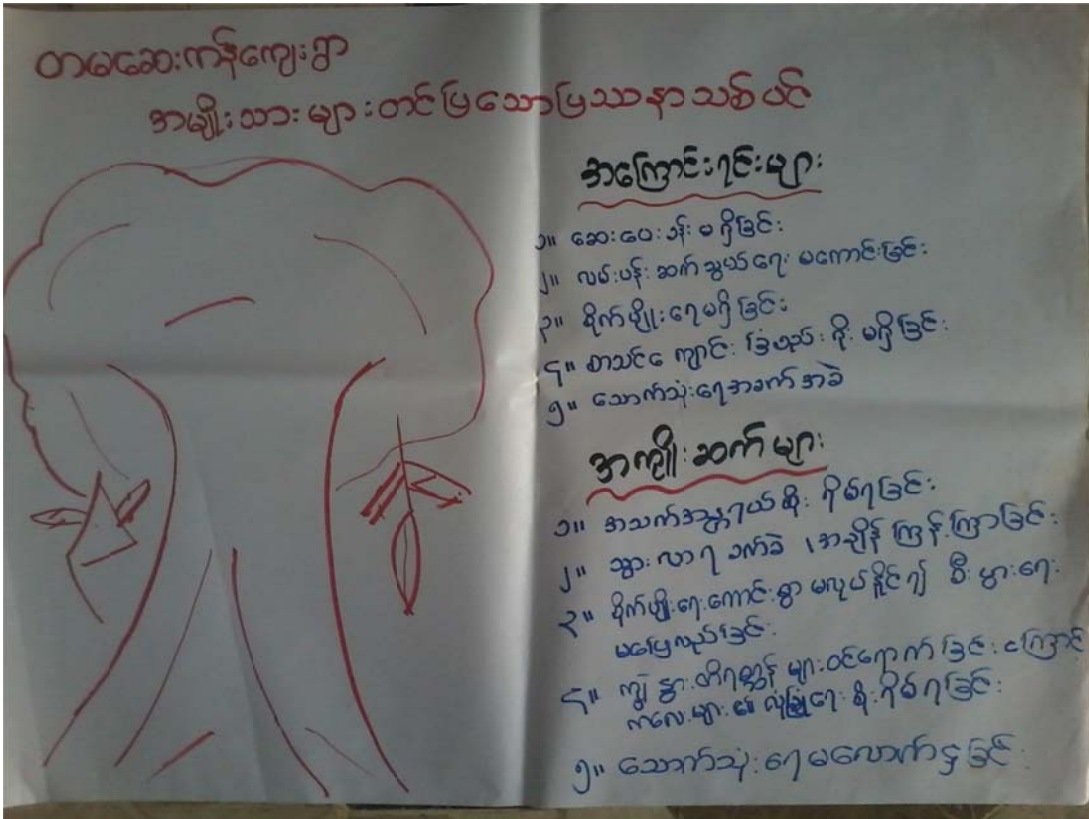 တမဆေးကန်ကျေးရွာ
အမျိုးသားများတင်ပြသောပြဿနာသစ်ပင်
အကြောင်းရင်းများ
၁။ ဆေးပေးခန်းမရှိခြင်း
၂။ လမ်းပန်းဆက်သွယ်ရေး မကောင်းခြင်း
၃။ စိုက်ပျိုးရေမရှိခြင်း
၄။ စာသင်ကျောင်း ခြံစည်းရိုး မရှိခြင်း
၅။ သောက်သုံးရေအခက်အခဲ
အကျိုးဆက်များ
၁။ အသက်အန္တရယ်စိုးရိမ်ရခြင်း
၂။ သွားလာရခက်ခဲ ၊အချိန်ကြန့်ကြာခြင်း
၃။ စိုက်ပျိုးရေးကောင်းစွာ မလုပ်နိုင်၍ စီးပွားရေး
မပြေလည်ခြင်း
၄။ ကျွဲနွားတိရစ္ဆာန်များဝင်ရောက်ခြင်းကြောင့်
ကလေးများ၏ လုံခြုံရေးစိုးရိမ်ရခြင်း
၅။ သောက်သုံးရေမလောက်ငှခြင်း